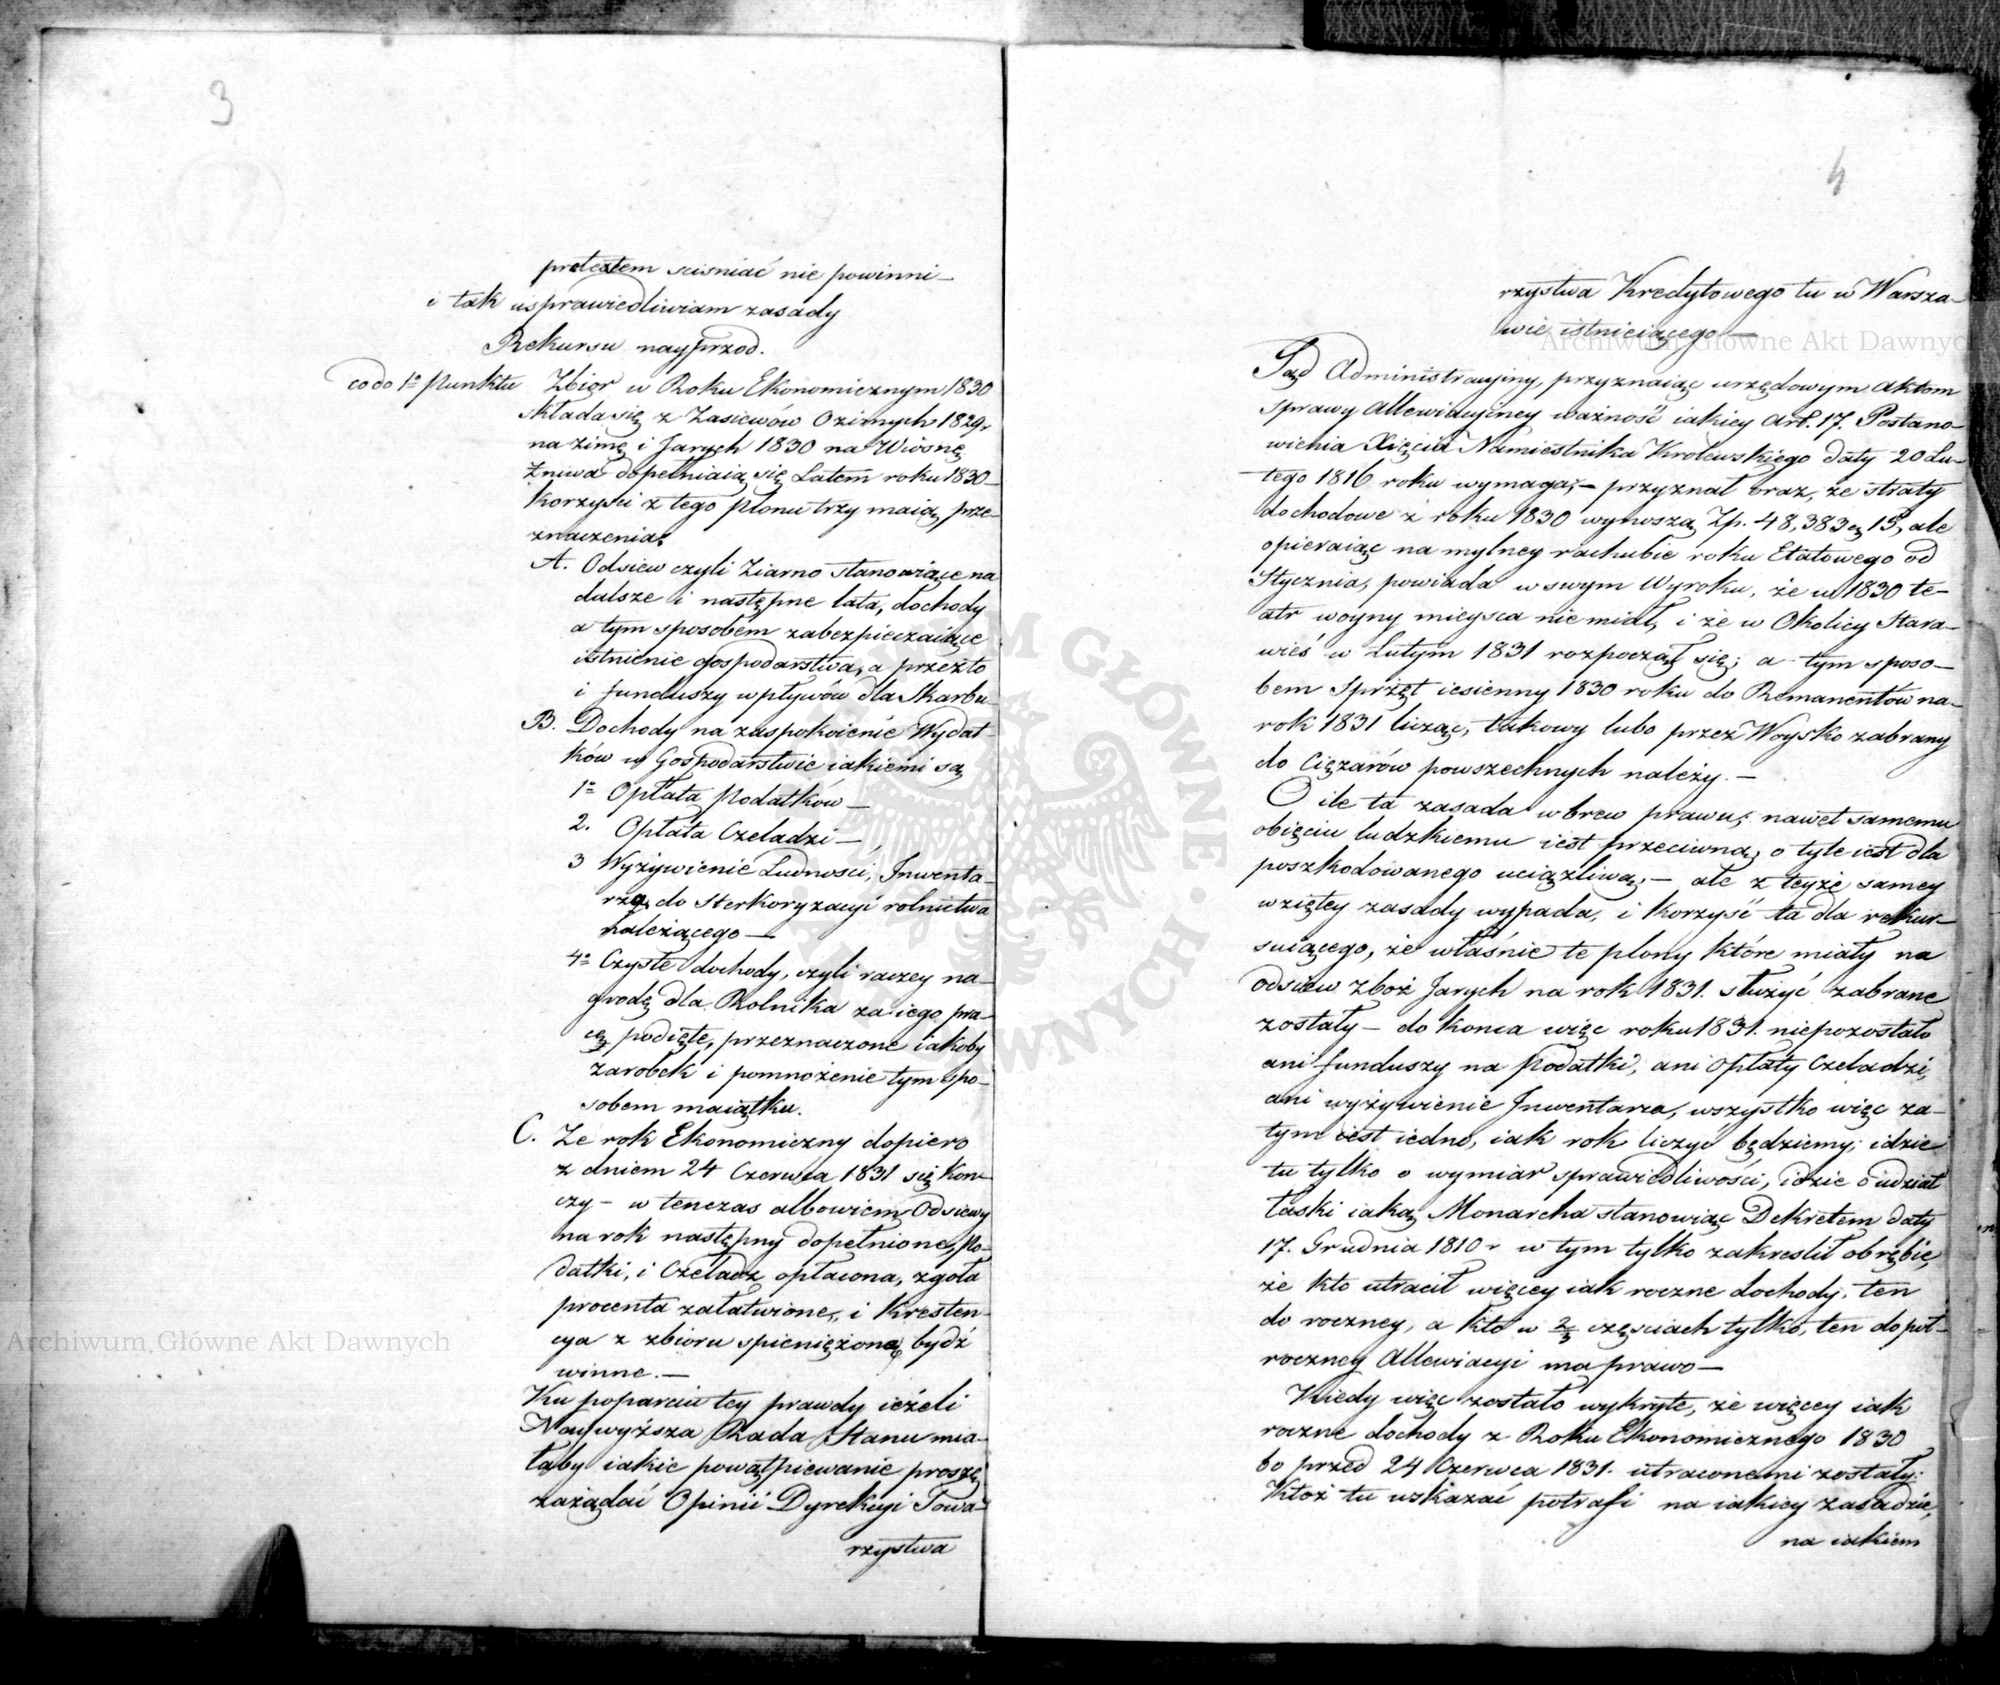 3
pretextem scisniać nie powinni —
i tak usprawiedliwiam zasady
Rekursu nayprzod.
co do 1o punktu Zbior w Roku Ekonomicznym 1830
składa się z Zasiewów Ozimych 1829r
na zimę i Jarych 1830 na Wiosnę,
Żniwa dopełniaią się Latem roku 1830 —
Korzyści z tego plonu trzy maią prze-
znaczenia,
A. Odsiew czyli Ziarno stanowiące na
dalsze i następne lata, dochody
a tym sposobem zabezpieczaiące
istnienie gospodarstwa, a przez to
i funduszy wpływów dla Skarbu —
B. Dochody na zaspokoienie Wydat-
ków w Gospodarstwie iakiemi są
1o Opłata Podatków —
2. Opłata Czeladzi —
3 Wyżywienie Ludności, Inwenta-
rza, do Sterkoryzacyi rolnictwa
należącego —
4o Czyste dochody, czyli raczey na-
grodę dla Rolnika za iego pra-
cę podięte, przeznaczone iakoby
zarobek i pomnożenie tym spo-
sobem maiątku.
C. Ze rok Ekonomiczny dopiero
z dniem 24 Czerwca 1831 się koń-
czy — w tenczas albowiem Odsiewy
na rok następny dopełnione, Po-
datki, i Czeladź opłacona, zgoła
procenta załatwione, i Kresten-
cya z zbioru spieniężona bydź
winne. —
Ku poparciu tey prawdy ieżeli
Naywyższa Rada Stanu mia-
łaby iakie powątpiewanie proszę
zażądać Opinii Dyrekcyi Towa-
rzystwa
4
rzystwa Kredytowego tu w Warsza-
wie istnieiącego —
Sąd Administracyiny, przyznaiąc urzędowym Aktom
sprawy Allewiacyiney ważność iakiey Art. 17. Postano-
wienia Xięcia Namiestnika Krolewskiego daty 20 Lu-
tego 1816 roku wymaga, — przyznał oraz, że straty
dochodowe z roku 1830 wynoszą Zp. 48,383 g 15, ale
opieraiąc na mylney rachubie roku Etatowego od
Stycznia, powiada w swym Wyroku, że w 1830 te-
atr woyny mieysca nie miał, i że w Okolicy Stara-
wieś w Lutym 1831 rozpoczął się; a tym sposo-
bem Sprzęt iesienny 1830 roku do Remanentów na-
rok 1831 licząc, takowy lubo przez Woysko zabrany
do Ciężarów powszechnych należy. —
O ile ta zasada wbrew prawu, nawet samemu
obięciu ludzkiemu iest przeciwną, o tyle iest dla
poszkodowanego uciążliwą, — ale z teyże samey
wziętey zasady wypada, i korzyść ta dla rekur-
suiącego, że właśnie te plony które miały na
odsiew zboż Jarych na rok 1831. służyć zabrane
zostały — do końca więc roku 1831. niepozostało
ani funduszy na Podatki, ani Opłaty Czeladzi,
ani wyżywienie Inwentarza, wszystko więc za-
tym iest iedno, iak rok liczyć będziemy, idzie
tu tylko o wymiar sprawiedliwości, idzie o udział
łaski iaką Monarcha stanowiąc Dekretem daty
17. Grudnia 1810 r w tym tylko zakreslił obrębie,
że kto utracił więcey iak roczne dochody, ten
do roczney, a kto w 2/3 częściach tylko, ten do pół-
roczney Allewiacyi ma prawo —
Kiedy więc zostało wykryte, że więcey iak
roczne dochody z Roku Ekonomicznego 1830
bo przed 24 Czerwca 1831. utraconemi zostały;
Ktoż tu uskazać potrafi na iakiey zasadzie,
na iakiem
Archiwum Główne Akt Dawnych
Archiwum Główne Akt Dawnych